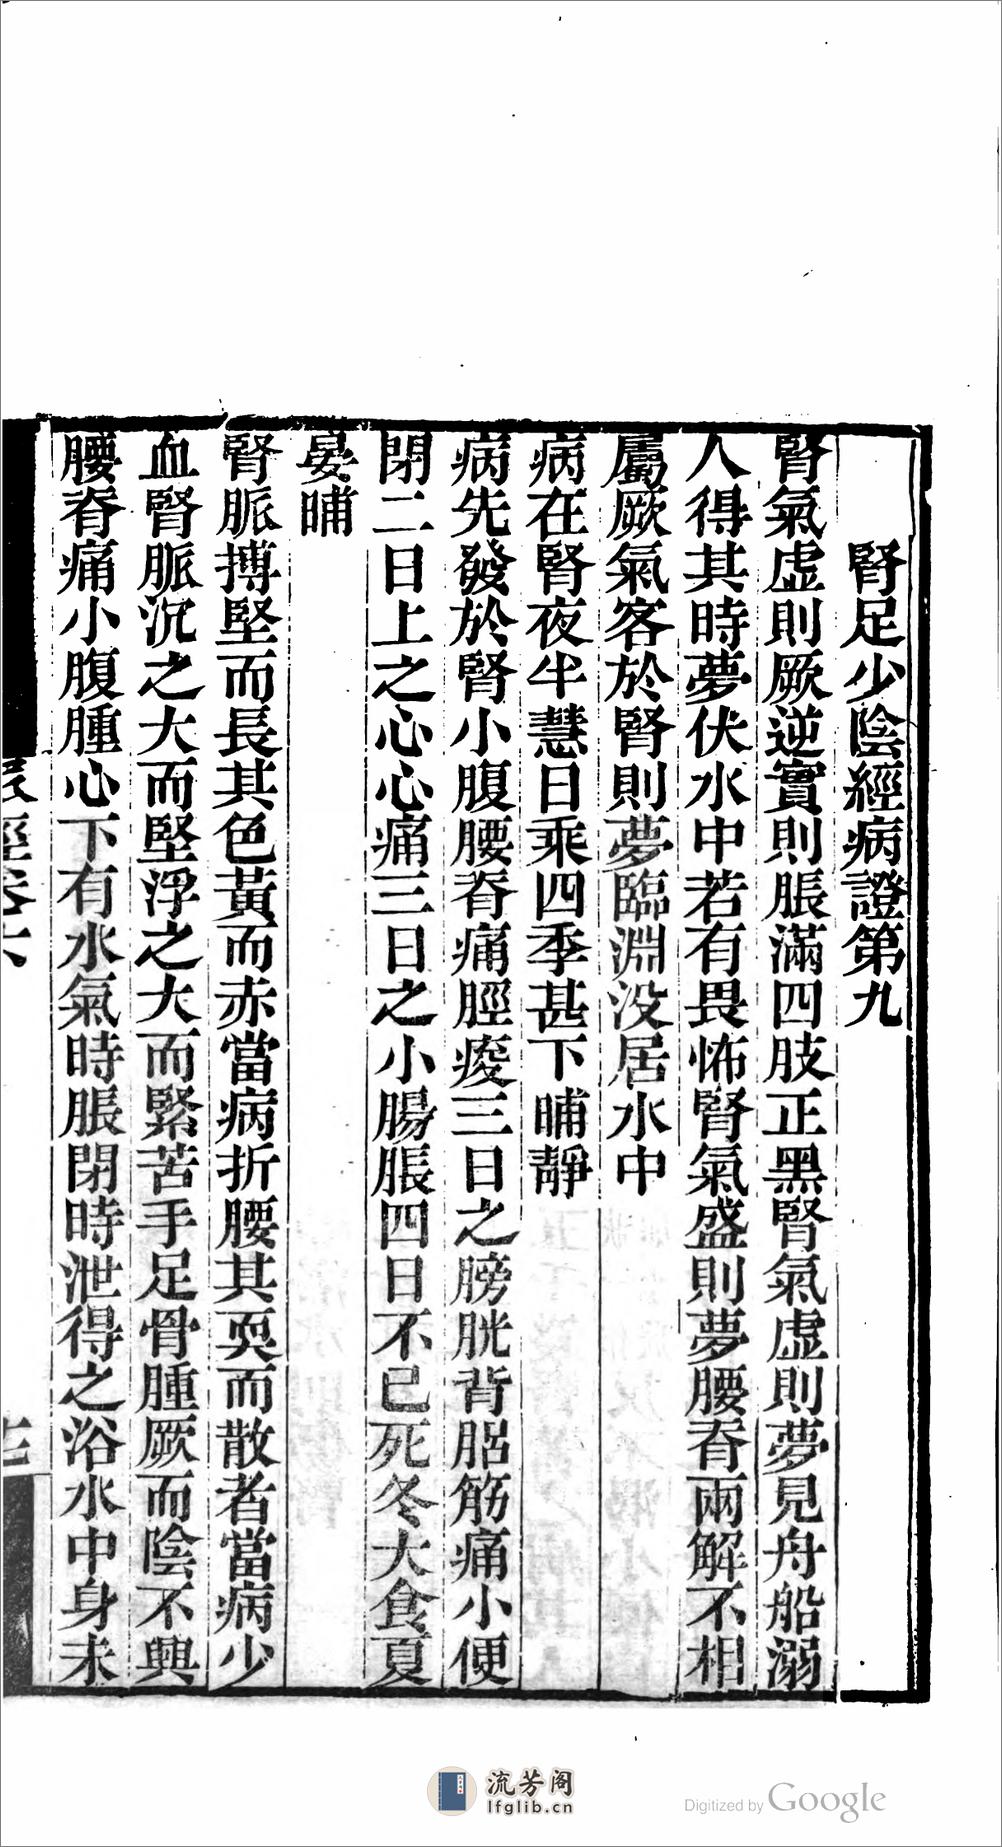 腎足少陰經病證第九
腎氣虛則厥逆實則脹滿四肢正黑腎氣虛則夢見舟船溺
人得其時夢伏水中若有畏怖腎氣盛則夢腰脊兩解不相
屬厥氣客於腎則夢臨淵没居水中
病在腎夜半慧日乘四季甚下晡靜
病先發於腎小腹腰脊痛脛痠三日之膀胱背䏚筋痛小便
閉二日上之心心痛三日之小腸脹四日不已死冬大食夏
晏晡
腎脈搏堅而長其色黃而赤當病折腰其耎而散者當病少
血腎脈沉之大而堅浮之大而緊苦手足骨腫厥而陰不興
腰脊痛小腹腫心下有水氣時脹閉時泄得之浴水中身未
經卷六
流芳阁
lfglib.cn
Digitized by Google